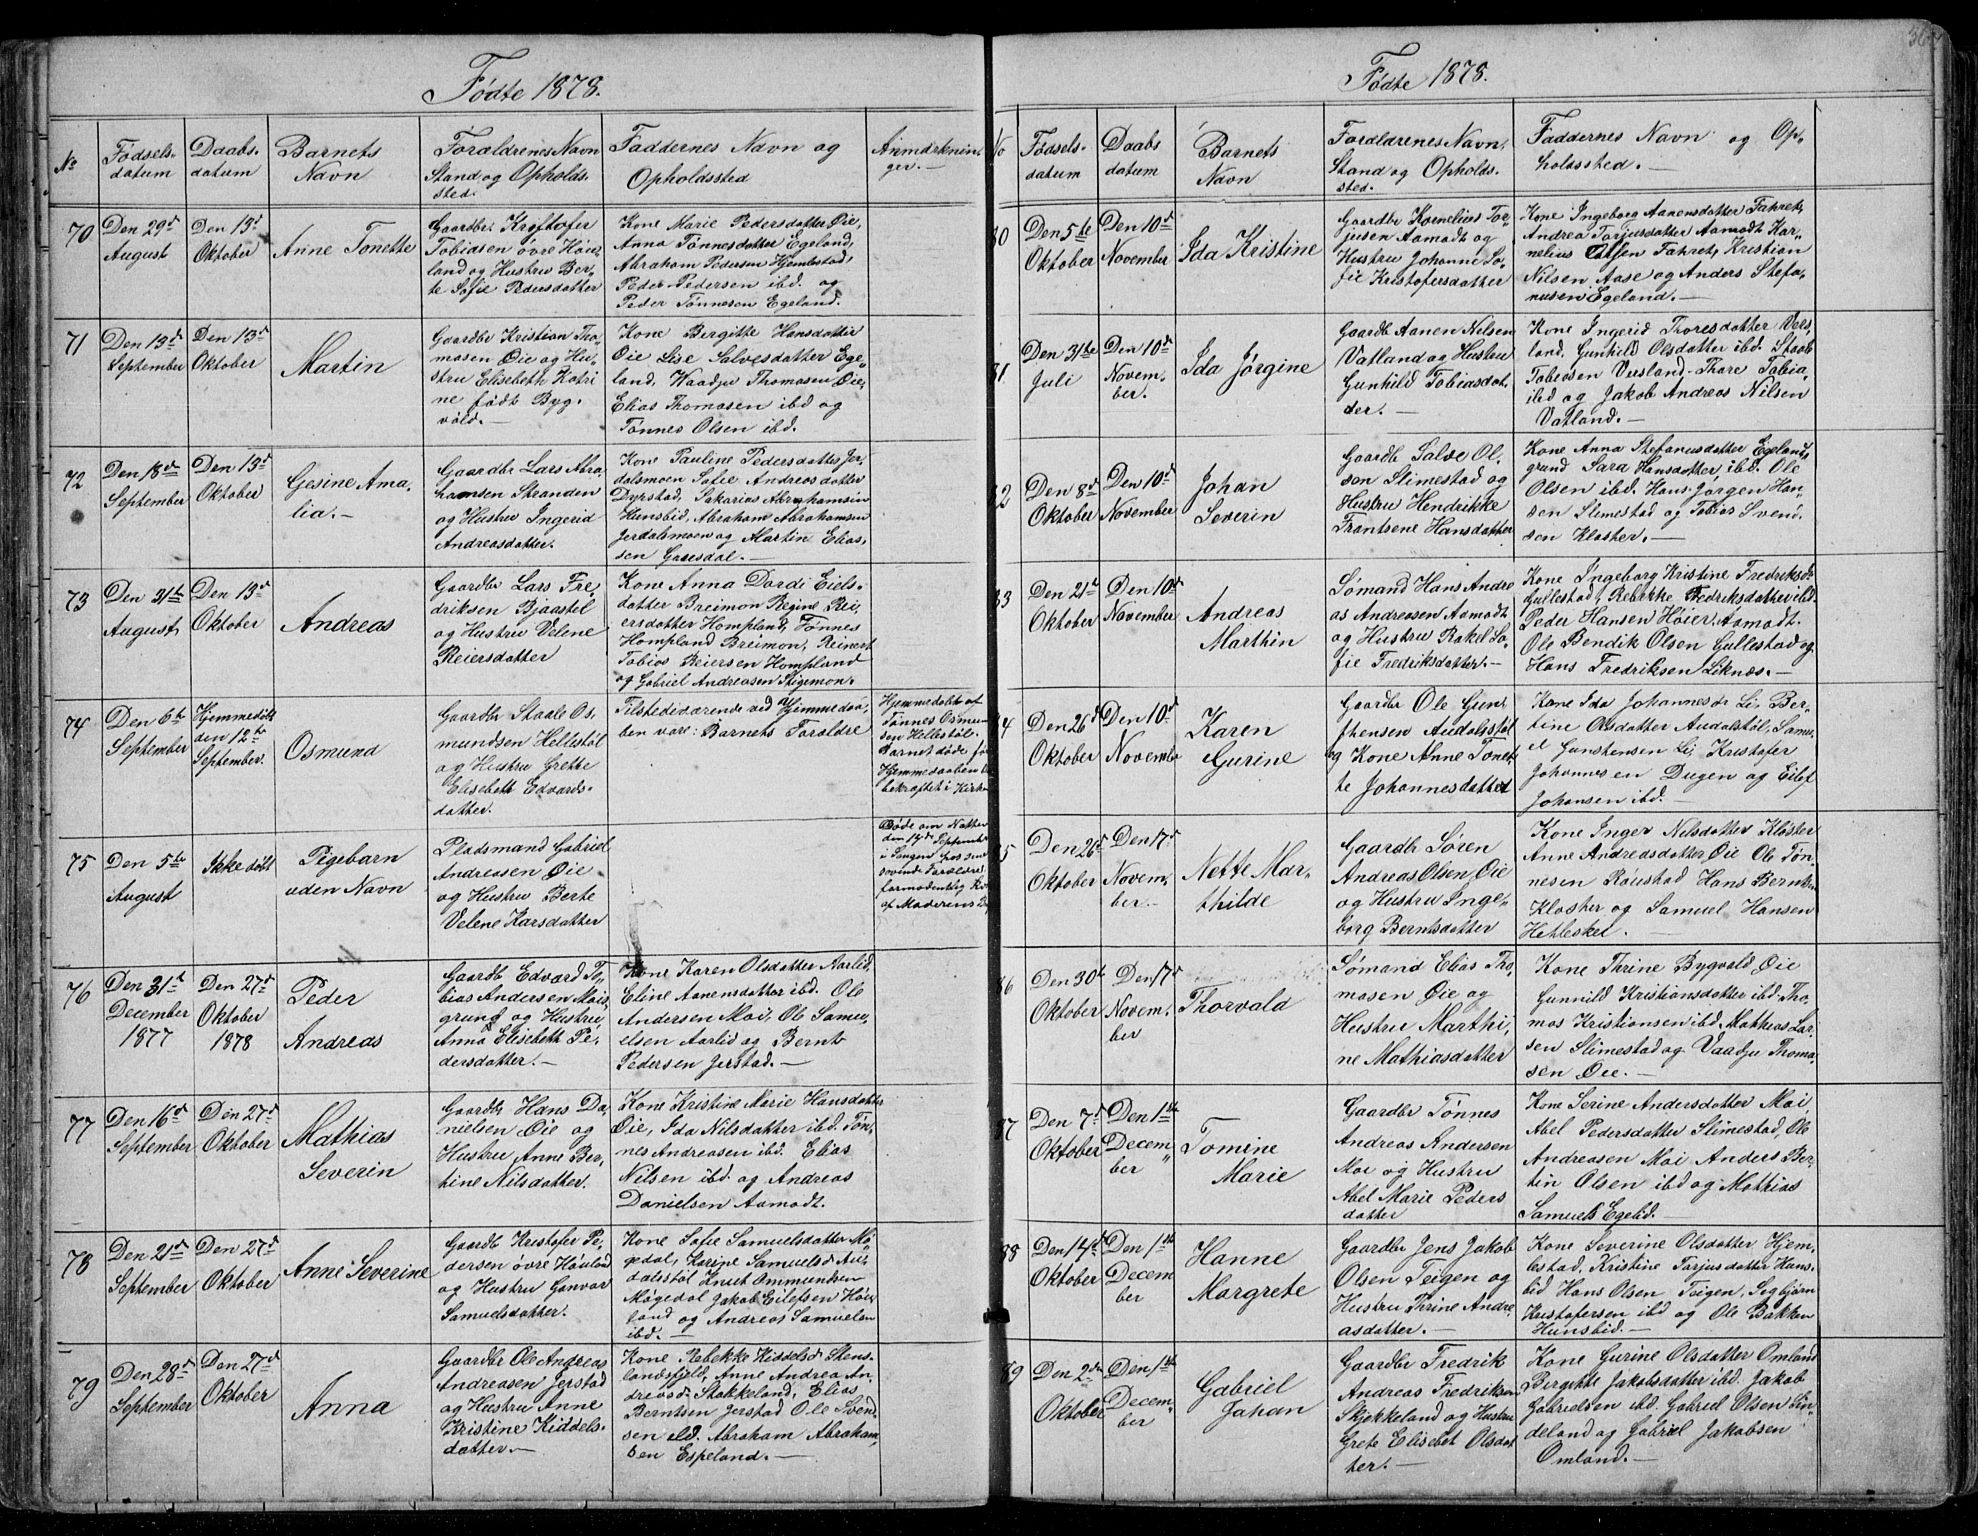 Fødte 1878.
No
Fødsels-
datum
Daabs-
datum
Barnets
Navn
Forældrenes Navn
Stand og Opholds-
sted.
Faddernes Navn og
Opholdssted
Anmærknin-
ger.
70
Den 29d
August
Den 13d
Oktober
Anne Tonette
Gaardbr Kristofer
Tobiasen øvre Høie-
land og Hustru Ber-
te Sofie Pedersdatter
Kone Marie Pedersdatter Øie,
Anna Tønnesdatter Egeland,
Abraham Pedersen Hjemlestad,
Peder Pedersen ibd. og
Peder Tønnesen Egeland.
71
Den 13d
September
Den 13d
Oktober
Martin
Gaardbr Kristian Tho-
masen Øie og Hu-
stru Elisebeth Katri
ne født Byg-
vold.
Kone Bergitte Hansdatter
Øie Lise Salvesdatter Ege-
land, Waadju Thomasen Øie,
Elias Thomasen ibd og
Tønnes Olsen ibd.
72
Den 18d
September
Den 13d
Oktober
Gesine Ama-
lia.
Gaardbr Lars Abra
hamsen Stranden
og Hustru Ingerid
Andreasdatter.
Kone Pauline Pedersdatter Jer-
dalsmoen Sofie Andreasdatter
Dyrstad, Sakarias Abrahamsen
Hunsbid, Abraham Abrahamsen
Jerdalsmoen og Martin Elias-
sen
73
Den 31te
August
Den 13d
Oktober
Andreas
Gaardbr Lars Fre-
driksen Bjaastøl
og Hustru Velene
Reiersdatter
Kone Anna Dordi Eiels-
datter Breimon Regine Rei-
ersdotter Hompland, Tønnes
Hompland Breimon, Reinert
Tobias Reiersen Hompland
og Gabriel Andreasen Stigemon.
74
Den 6te
September
Hjemmedøbt
den 12te
September.
Osmund
Gaardbr Staale Os-
mundsen Hellestøl
og Hustru Grethe
Elisebeth Edvards-
datter.
Tilstedeværende ved Hjemmedaa-
ben vare: Barnets Forældre
Hjemmedøbt af
Tønnes Osmun-
sen Hellestøl.
Barnet døde før
Hjemmedaaben
bekræftet i Kirk
75
Den 5te
August
Ikke døbt
Pigebarn
uden Navn
Pladsmand Gabriel
Andreasen Øie
og Hustru Berte
Velene Larsdatter
Døde om Natten
den 14de September
i Sengen hos sine
sovende Forældre
formodentlig
af Moderens
76
Den 31t
December
1877
Den 27d
Oktober
1878
Peder
Andreas
Gaardb Edvard To-
bias Andersen Mois
grund og Hustru
Anna Elisebeth Pe-
dersdatter.
Kone Karen Olsdatter Aarlid,
Eline Aanensdatter ibd. Ole
Andersen Moi, Ole Samu-
elsen Aarlid og Bernt
Pedersen Jerstad.
77
Den 16d
September
Den 27d
Oktober
Mathias
Severin
Gaardbr Hans Da-
nielsen Øie og
Hustru Anne Ber-
tine Nilsdatter.
Kone Kristine Marie Hansdatter
Øie, Ida Nilsdatter ibd. Tøn-
nes Andreasen ibd. Elias
Nilsen ibd. og Andreas
Danielsen Aamodt.
78
Den 21d
September
Den 27d
Oktober
Anne Severine
Gaardb Kristofer Pe-
dersen øvre Høiland
og Hustru Gunvor
Samuelsdatter.
Kone Sofie Samuelsdatter Mø-
gedal, Karine Samuelsd Au-
dalstøl Knut Ommundsen
Møgedal Jakob Eilefsen Høie-
land og Andreas Samuelsen
ibd.
79
Den 28d
September
Den 27d
Oktober
Anna
Gaardbr Ole Andreas
Andreasen Jerstad
og Hustru Anne
Kristine Kiddels-
datter
Kone Rebekke Kiddelsd Stens-
landsfjeld, Anne Andrea An-
dreasd. Stakkeland, Elias
Berntsen Jerstad Ole Svend-
sen ibd. Abraham Abraham-
sen Espeland.
Fødte 1878.
No
Fødsels-
datum
Daabs
datum
Barnets
Navn
Forældrenes Navn,
Stand og Opholds-
sted.
Faddernes Navn og Op-
holdssted.
80
Den 5te
Oktober
Den 10d
November
Ida Kristine
Gaardbr Kornelius Tor-
jusen Aamodt og
Hustru Johanne So-
fie Kristofersdatter
Kone Ingeborg Aanensdatter Fahret,
Andrea Torjusdatter Aamodt Kor-
nelius Fahret, Kristian
Nilsen Aase og Anders Stefa-
nusen Egeland.
81
Den 31te
Juli
Den 10d
Novem-
ber.
Ida Jørgine
Gaardb Aanen Nilsen
Vatland og Hustru
Gunhild Tobiasdat-
ter.
Kone Ingerid Thoresdatter Vers-
land, Gunhild Olsdatter ibd. Staale
Tobiasen Versland Thore Tobia-
ibd og Jakob Andreas Nilsen
Vatland.
82
Den 8d
Oktober
Den 10d
November
Johan
Severin
Gaardb Salve Ol-
sen Slimestad og
Hustru Hendrikke
Frantsene Hansdatter
Kone Anna Stefanusdatter Egelands
grund Sara Hansdatter ibd. Ole
Olsen ibd. Hans Jørgen Han-
sen Slimestad og Tobias Svend-
sen Kloster.
83
Den 21d
Oktober
Den 10d
November
Andreas
Marthin
Sømand Hans Andre
as Andreasen Aamodt
og Hustru Rakel So-
fie Fredriksdatter.
Kone Ingeborg Kristine Fredriksd.
Gullestad, Rebekke Fredriksdatter ibd
Peder Hansen Høier Aamodt.
Ole Bendik Olsen Gullestad og
Hans Fredriksen Liknæs.
84
Den 26d
Oktober
Den 10d
November
Karen
Gurine
Gaardbr Ole Gun-
sthensen Audalstøl
og Kone Anne Tonet-
te Johannesdatter
Kone Ida Johannesd. Li, Ber-
tine Olsdatter Audalstøl, Samu-
el Gunstensen Li Kristofer
Johannesen Dugen og Eilef
Johansen ibd.
85
Den 26d
Oktober
Den 17d
Novem-
ber.
Nette Mar-
thilde
Gaardb Søren
Andreas Olsen Øie
og Hustru Inge-
borg Berntsdatter
Kone Inger Nilsdatter Kloster
Anne Andreasdatter Øie Ole Tøn-
nesen Røustad Hans Berntsen
Kloster og Samuel Hansen
Hetlesket.
86
Den 30te
Oktober
Den 17d
Novem-
ber
Thorvald
Sømand Elias Tho-
masen Øie og
Hustru Marthi-
ne Mathiasdatter
Kone Thrine Bygvold Øie
Gunnild Kristiansdatter ibd. Tho-
mas Kristiansen ibd. Mathias Lar-
sen Slimestad og Vaadju Thoma-
sen Øie.
87
Den 7d
Oktober
Den 1ste
Decem-
ber
Tomine
Marie
Gaardbr Tønnes
Andreas Andersen
Moi og Hustru
Abel Marie Peders
datter
Kone Serine Andersdatter Moi
Abel Pedersdatter Slimestad, Ole
Andreasen Moi Anders Ber-
tin Olsen ibd og Mathias
Samuels Egelid.
88
Den 14d
Oktober
Den 1ste
Decem
ber
Hanne
Margrete
Gaardbr Jens Jakob
Olsen Teigen og
Hustru Thrine Andre
asdatter.
Kone Severine Olsdatter Hjem-
lestad, Kristine Torjusdatter Huns-
bid Hans Olsen Teigen, Segbjørn
Kristofersen ibd og Ole Bakken
Hunsbid.
89
Den 2den
Oktober
Den 1ste
Decem-
ber
Gabriel
Johan
Gaardbr Fredrik
Andreas Fredriksen
Skjekkeland og Hustru
Grete Elisebet Olsdat
ter.
Kone Gurine Olsdatter Omland
Bergitte Jakobsdatter ibd. Jakob
Gabrielsen ibd. Gabriel Olsen Ein-
deland og Gabriel Jakobsen
Omland.